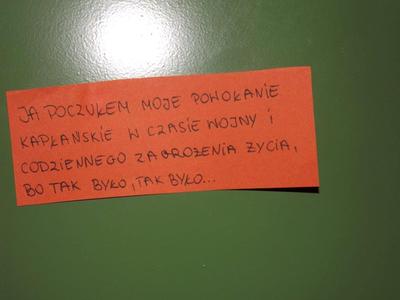 JA POCZUŁEM MOJE POWOŁANIE
KAPŁAŃSKIE W CZASIE WOJNY I
CODZIENNEGO ZAGROŻENIA ŻYCIA,
BO TAK BYŁO, TAK BYŁO...